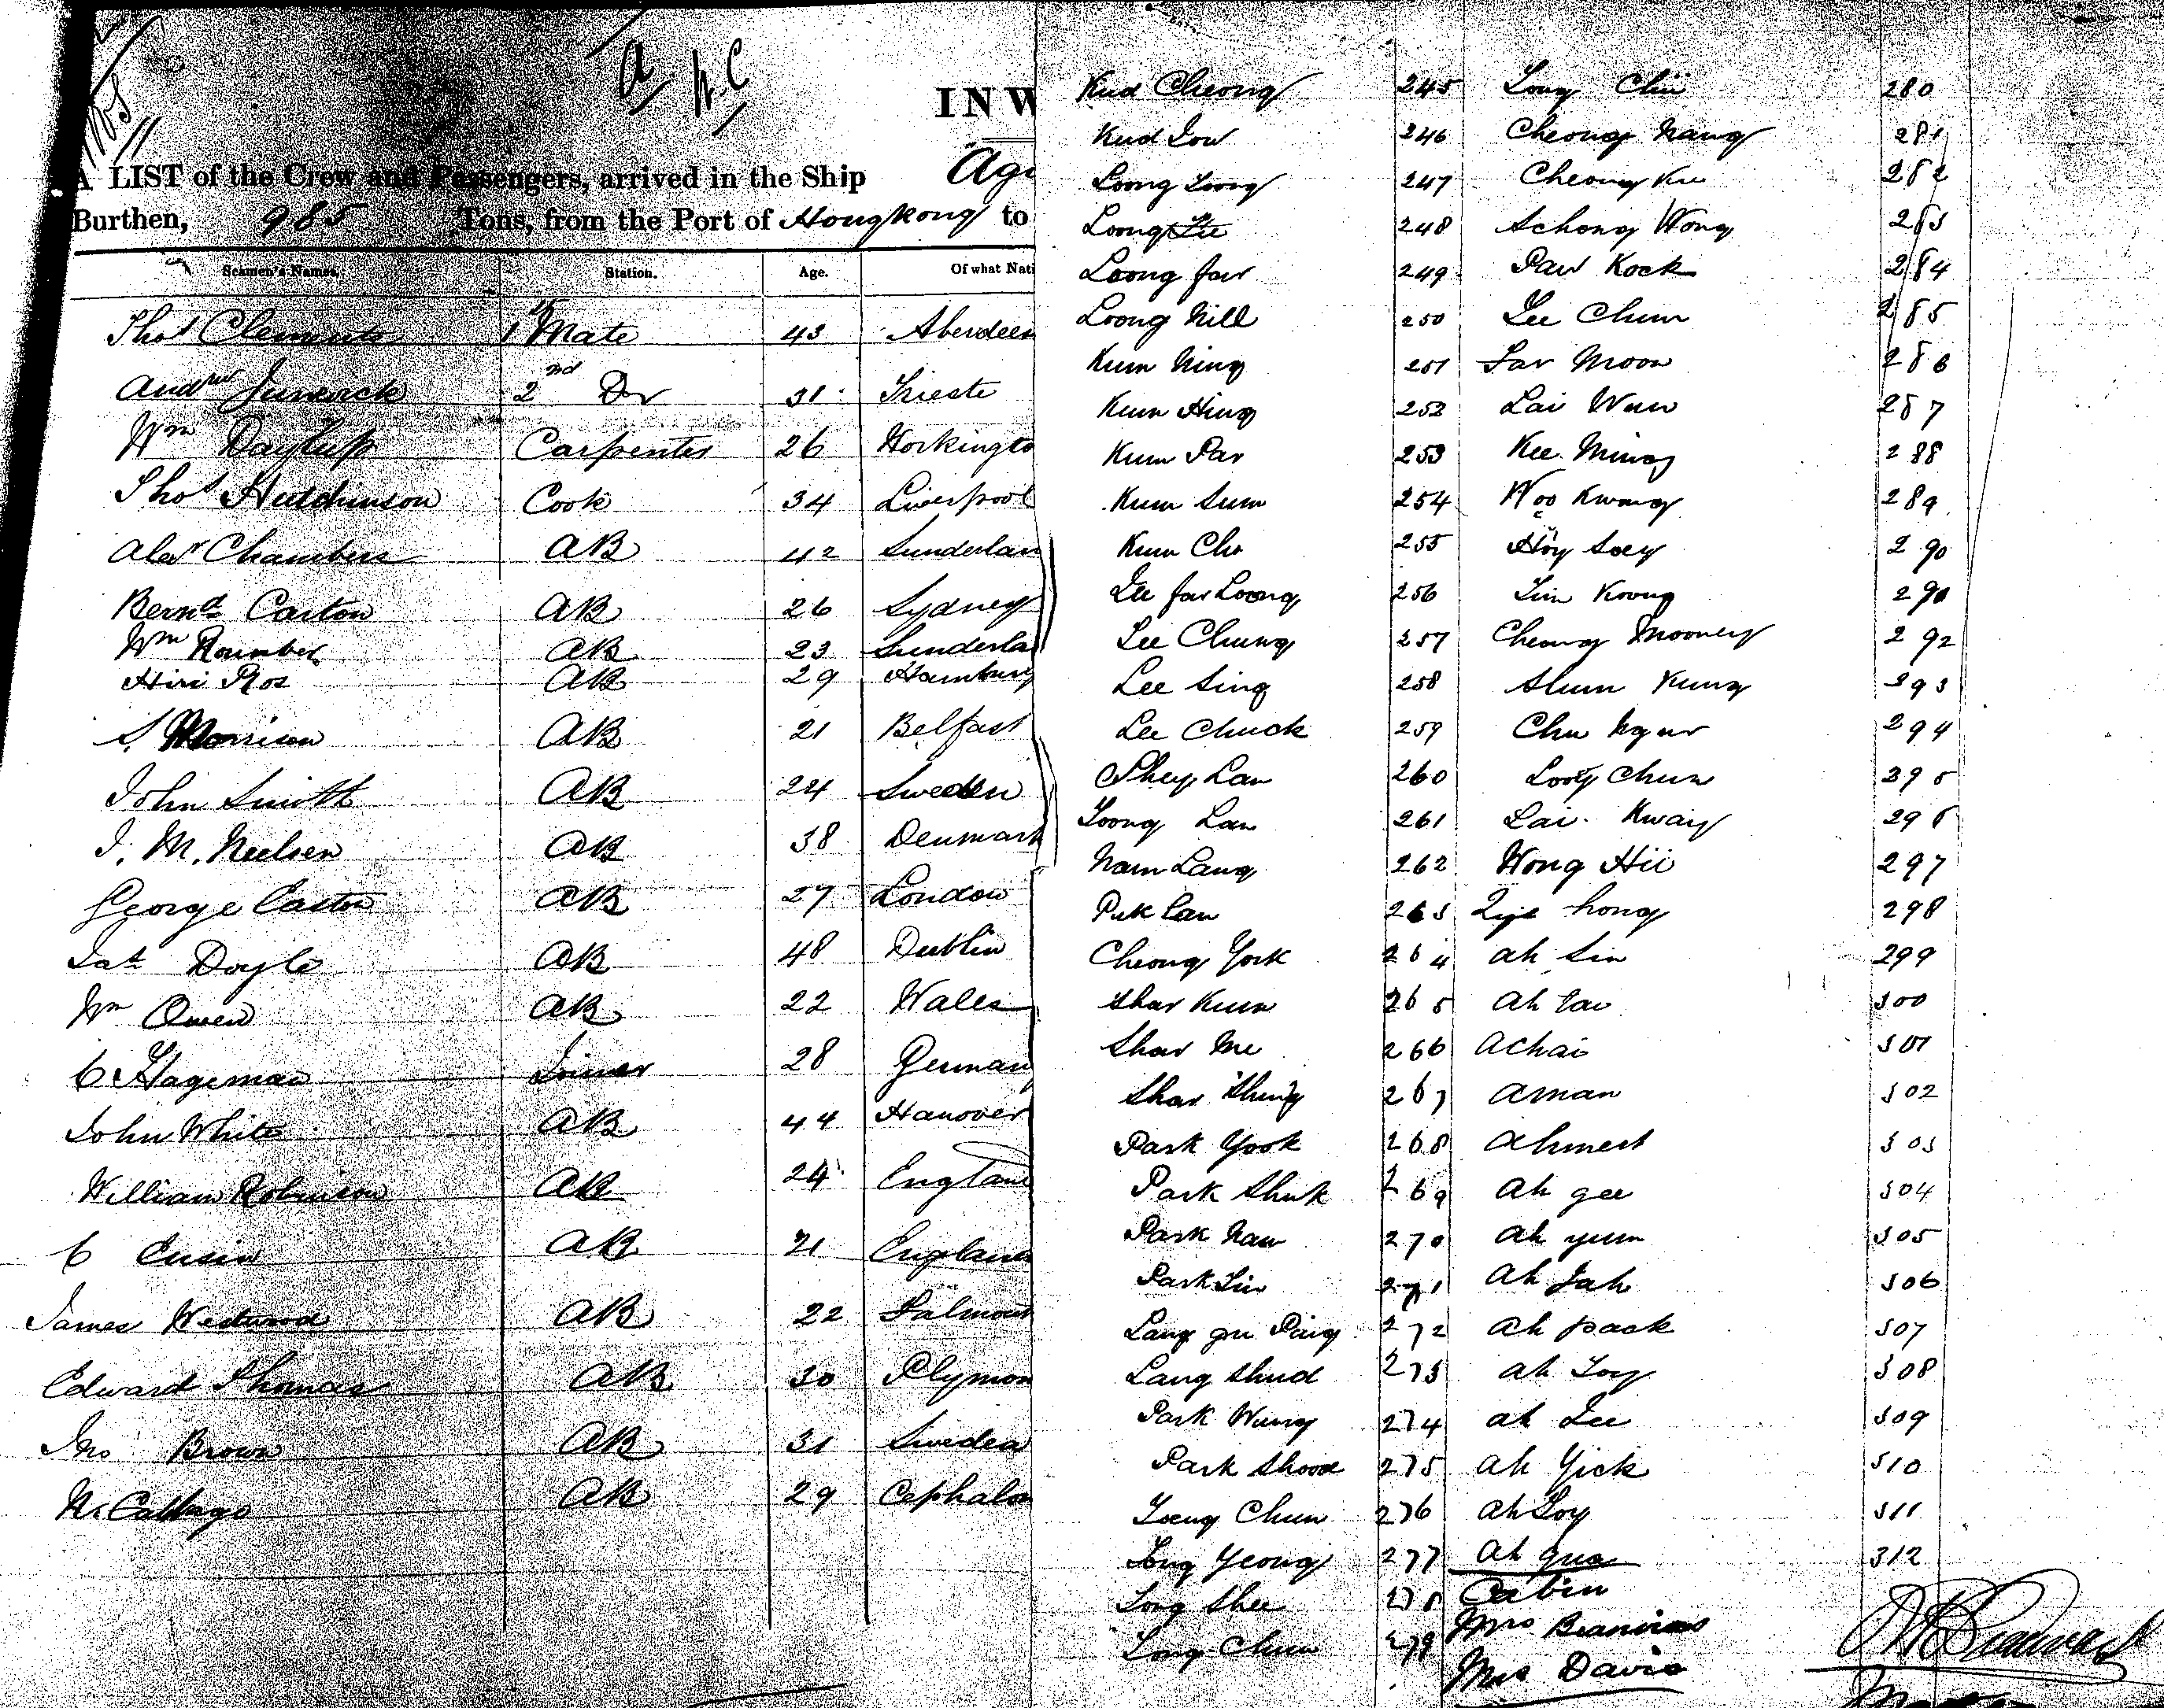 a
N.C
INW
A LIST of the Crew and Passengers, arrived in the Ship
Burthen, 985 Tons, from the Port of Hong Kong to
Seamen's Names. Station. Age. Of what Nati
Thos Clements 1st Mate 43 Aberdeen
Andrw 2nd Do 31 Trieste
Wm Carpenter 26 Workingto
Thos Hutchinson Cook 34 Liverpool
Alexr Chambers AB 42 Sunderlan
Bernd Carton AB 26 Sydney
Wm AB 23 Sunderla
AB 29 Hamburg
S. Morrison AB 21 Belfast
John Smith AB 24 Sweden
J. M. Neelsen AB 38 Denmark
George Easton AB 27 London
Doyle AB 48 Dublin
Wm Owen AB 22 Wales
C Hageman 28 German
John White AB 44 Hanover
William Robinson AB 24 England
C AB 21 England
James Westwood AB 22 Falmout
Edward Thomas AB 30 Plymou
Jno Brown AB 31 Sweden
AB 29 Cephalon
Kud Cheong 245 Long Chii 280
Kud Low 246 Cheong Nang 281
Loong Loong 247 Cheong Kee 282
Loong 248 Achong Wong 283
Loong far 249 Paw Kock 284
Loong Nill 250 Lee Chum 285
Kum Ning 251 Far Moon 286
Kum Hing 252 Lai Wun 287
Kum Par 253 Kee Ming 288
Kum Sum 254 Woo Kwong 289
Kum Cho 255 Hoy Soey 290
Lee far Loong 256 Lim Koong 291
Lee Chung 257 Cheong Mooney 292
Lee Sing 258 Shum Kung 293
Lee Chuck 259 Chu 294
Shey Lan 260 Chun 295
Loong Lan 261 Lai Kway 296
Nam Lang 262 Wong Hii 297
Puk Lan 263 hong 298
Cheong York 264 ah Sin 299
Shar Kum 265 ah tai 300
Shar Me 266 achai 301
Shar Shing 267 aman 302
Park Yook 268 303
Park Shuk 269 ah gee 304
Park Nau 270 ah yum 305
Park Lin 271 ah Jah 306
Lang 272 ah pack 307
Lang Shud 273 ah Loy 308
Park Wung 274 ah Lee 309
Park Shood 275 ah Yick 310
Chun 276 ah Loy 311
Long Yeong 277 ah gua 312
Long Shee 278 Cabin
Long Chun 279 Mrs
Mrs Davis